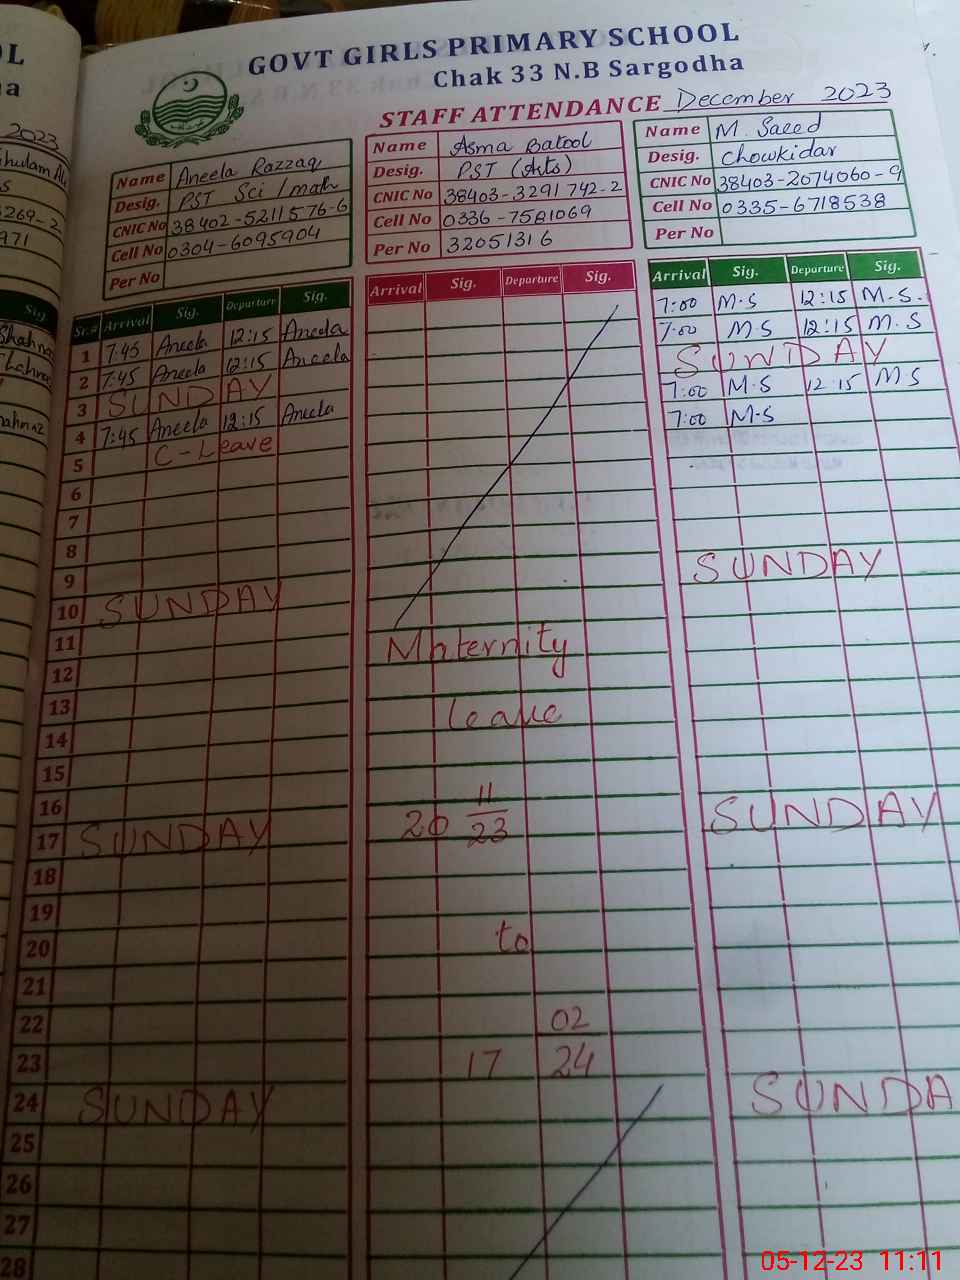 GOVT GIRLS PRIMARY SCHOOL
Chak 33 N.B Sargodha
STAFF ATTENDANCE December 2023
Name Aneela Razzaq
Desig. PST Sci / math
CNIC No 38402-5211576-6
Cell No 0304-6095904
Per No
Name Asma Batool
Desig. PST (Arts)
CNIC No 38403-3291742-2
Cell No 0336-7581069
Per No 32051316
Name M. Saeed
Desig. Chowkidar
CNIC No 38403-2074060-9
Cell No 0335-6718538
Per No
Sr.# Arrival Sig. Departure Sig.
1 7:45 Aneela 12:15 Aneela
2 7:45 Aneela 12:15 Aneela
3 SUNDAY
4 7:45 Aneela 12:15 Aneela
5 C-Leave
6
7
8
9
10 SUNDAY
11
12
13
14
15
16
17 SUNDAY
18
19
20
21
22
23
24 SUNDAY
25
26
27
28
Arrival Sig. Departure Sig.
Maternity
leave
20 11/23
to
17 02/24
Arrival Sig. Departure Sig.
7:00 M.S 12:15 M.S.
7:00 M.S 12:15 M.S
SUNDAY
7:00 M.S 12:15 M.S
7:00 M.S
SUNDAY
SUNDAY
SUNDA
05-12-23 11:11